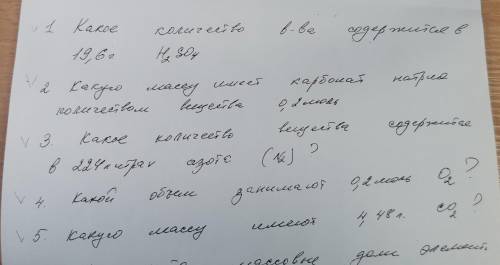 1 Какое количество в-ва содержится в
19,6 г H₂SO₄
2 Какую массу имеет карбонат натрия
количеством вещества 0,2 моль
3. Какое количество вещества содержится
в 224 литрах азота (N₂)?
4. Какой объем занимают 0,2 моль O₂?
5. Какую массу имеют 4,48 л. CO₂?
массовые доли элемент